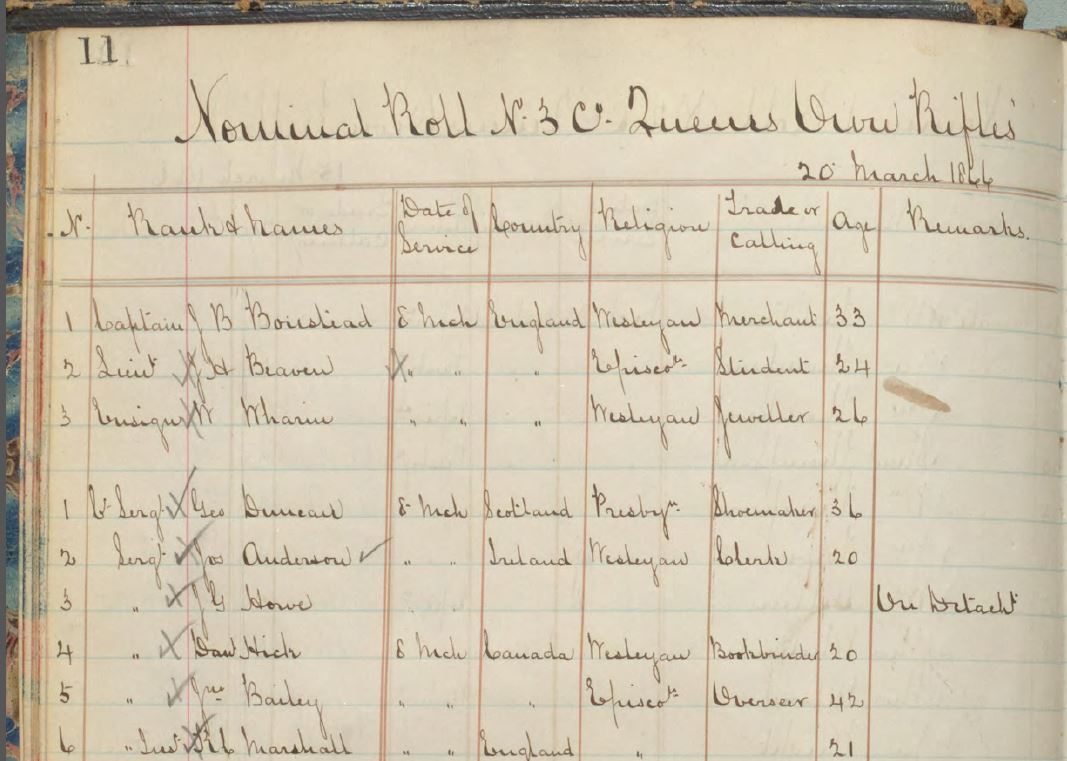 11
Nominal Roll No. 3 Co. Queens Own Rifles
20 March 1866
No. Rank & Names Date of Service Country Religion Trade or Calling Age Remarks.
1 Captain J B Boustead 8 Mch England Wesleyan Merchant 33
2 Lieut J H Beaven " " " Episcoln Student 24
3 Ensign W Wharin " " " Wesleyan Jeweller 26
1 Cr Sergt Geo Duncan 8 Mch Scotland Presbyn Shoemaker 36
2 Sergt Jas Anderson " " Ireland Wesleyan Clerk 20
3 " J G Howe On Detacht
4 " Danl Hick 8 Mch Canada Wesleyan Bookbinder 20
5 " Jno Bailey " " " Episcoln Overseer 42
6 " Marshall " " England " 21